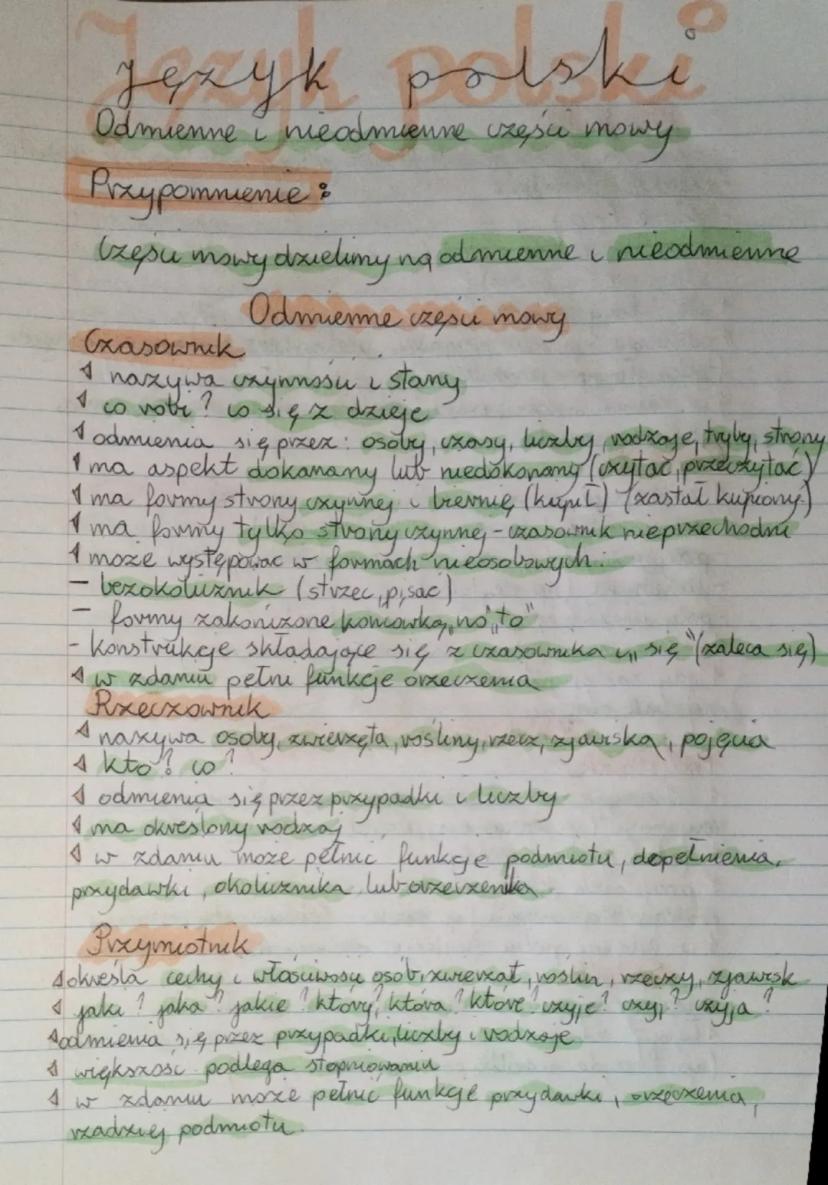 Język polski
Odmienne i nieodmienne części mowy
Przypomnienie:
Części mowy dzielimy na odmienne i nieodmienne
Odmienne części mowy
Czasownik
nazywa czynności i stany
co robi? co się z dzieje
odmienia się przez: osoby, czasy, liczby, rodzaje, tryby, strony
ma aspekt dokonany lub niedokonany (czytać, przeczytać)
ma formy strony czynnej i biernię (kupił) (został kupiony)
ma formy tylko strony czynnej - czasownik nieprzechodni
może występować w formach nieosobowych:
- bezokolicznik (strzec, pisać)
- formy zakończone końcówką „no” „to”
- konstrukcje składające się z czasownika i „się” (zaleca się)
w zdaniu pełni funkcje orzeczenia
Rzeczownik
nazywa osoby, zwierzęta, rośliny, rzecz, zjawiska, pojęcia
kto? co?
odmienia się przez przypadki i liczby
ma określony rodzaj
w zdaniu może pełnić funkcje podmiotu, dopełnienia,
przydawki, okolicznika lub orzecznika
Przymiotnik
określa cechy i właściwości osób, zwierząt, roślin, rzeczy, zjawisk
jaki? jaka? jakie? który? która? które? czyje? czyj? czyja?
odmienia się przez przypadki, liczby i rodzaje
większość podlega stopniowaniu
w zdaniu może pełnić funkcje przydawki, orzeczenia,
rzadziej podmiotu.